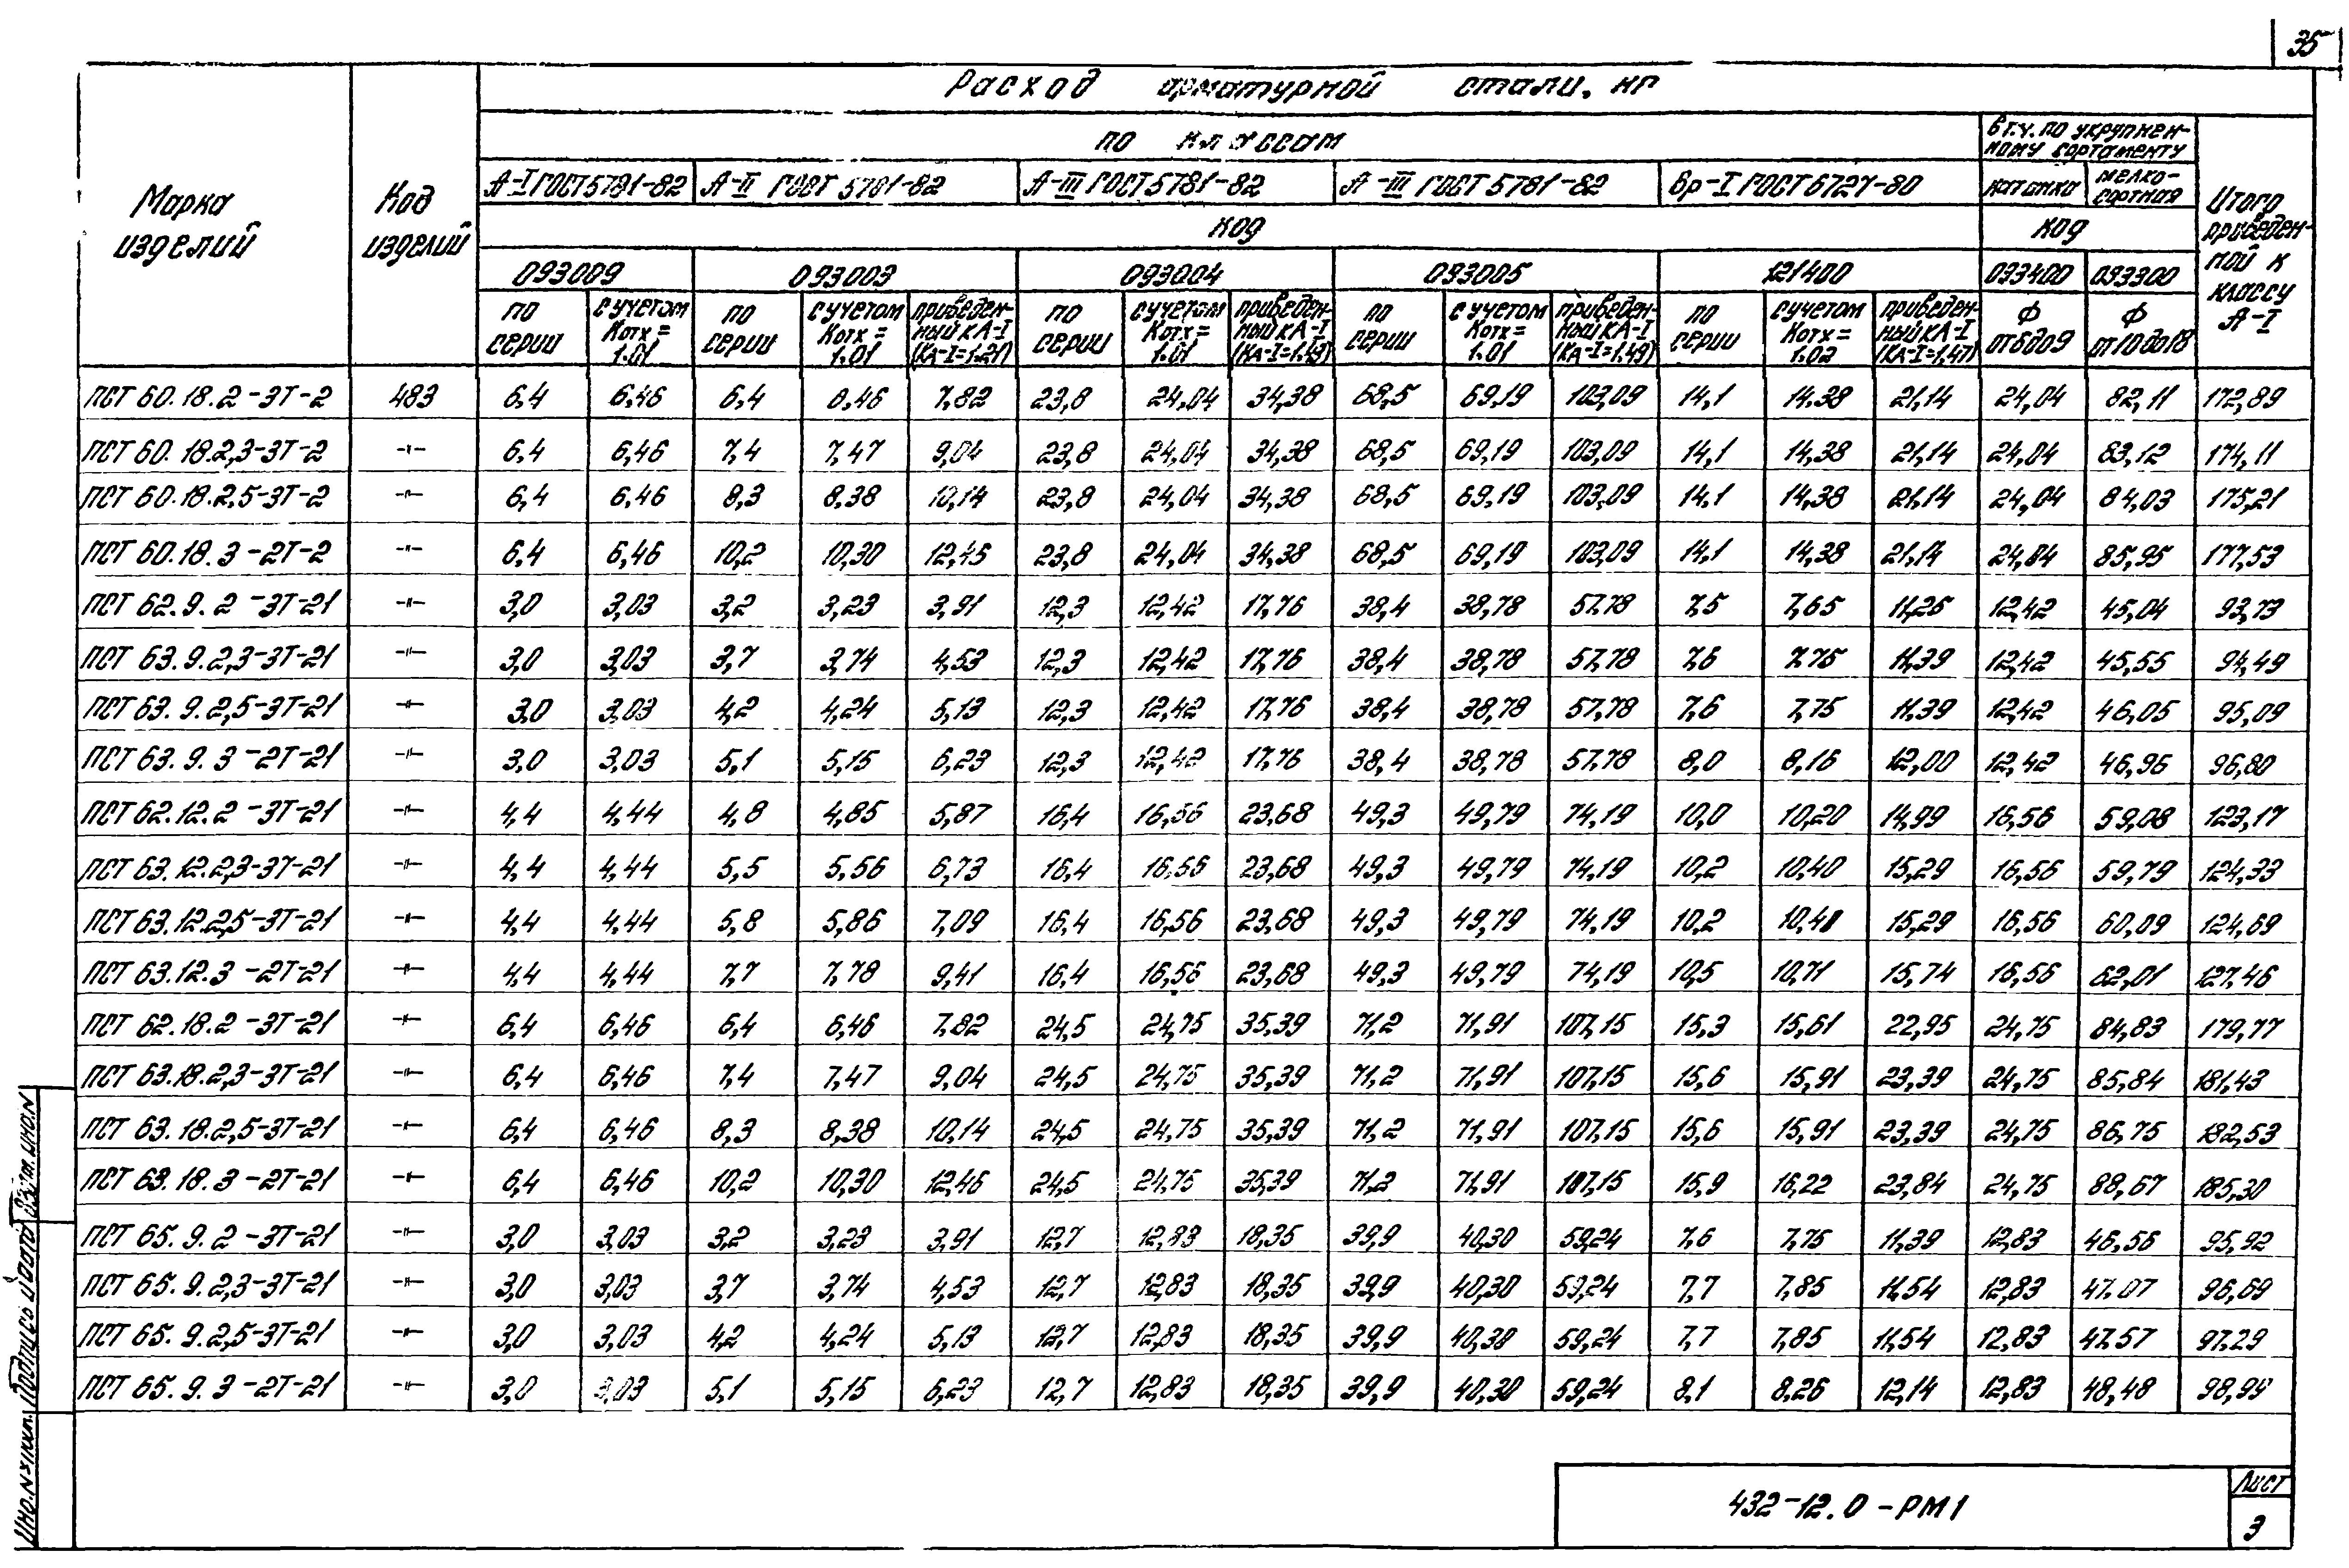 35
Расход арматурной стали, кг
по классам
в т.ч. по укрупнен-
ному сортаменту
Марка
изделий
Код
изделий
А-I ГОСТ 5781-82
А-II ГОСТ 5781-82
А-III ГОСТ 5781-82
А-III ГОСТ 5781-82
Вр-I ГОСТ 6727-80
катанка
мелко-
сортная
Итого
приведен-
ной к
классу
А-I
код
код
093009 093003 093004 093005 121400 093400 093300
по серии
с учетом Kотх = 1.01
по серии
с учетом Kотх = 1.01
приведен-ный к А-I (КА-I=1.21)
по серии
с учетом Kотх = 1.01
приведен-ный к А-I (КА-I=1.43)
по серии
с учетом Kотх = 1.01
приведен-ный к А-I (КА-I=1.49)
по серии
с учетом Kотх = 1.02
приведен-ный к А-I (КА-I=1,47)
ф от 6 до 9
ф от 10 до 18
ПСТ 60.18.2-3Т-2 483 6,4 6,46 6,4 6,46 7,82 23,8 24,04 34,38 68,5 69,19 103,09 14,1 14,38 21,14 24,04 82,11 172,89
ПСТ 60.18.2,3-3Т-2 -"- 6,4 6,46 7,4 7,47 9,04 23,8 24,04 34,38 68,5 69,19 103,09 14,1 14,38 21,14 24,04 83,12 174,11
ПСТ 60.18.2,5-3Т-2 -"- 6,4 6,46 8,3 8,38 10,14 23,8 24,04 34,38 68,5 69,19 103,09 14,1 14,38 21,14 24,04 84,03 175,21
ПСТ 60.18.3-2Т-2 -"- 6,4 6,46 10,2 10,30 12,45 23,8 24,04 34,38 68,5 69,19 103,09 14,1 14,38 21,14 24,04 85,95 177,53
ПСТ 62.9.2-3Т-21 -"- 3,0 3,03 3,2 3,23 3,91 12,3 12,42 17,76 38,4 38,78 57,78 7,5 7,65 11,25 12,42 45,04 93,73
ПСТ 63.9.2,3-3Т-21 -"- 3,0 3,03 3,7 3,74 4,53 12,3 12,42 17,76 38,4 38,78 57,78 7,6 7,75 11,39 12,42 45,55 94,49
ПСТ 63.9.2,5-3Т-21 -"- 3,0 3,03 4,2 4,24 5,13 12,3 12,42 17,76 38,4 38,78 57,78 7,6 7,75 11,39 12,42 46,05 95,09
ПСТ 63.9.3-2Т-21 -"- 3,0 3,03 5,1 5,15 6,23 12,3 12,42 17,76 38,4 38,78 57,78 8,0 8,16 12,00 12,42 46,96 96,80
ПСТ 62.12.2-3Т-21 -"- 4,4 4,44 4,8 4,85 5,87 16,4 16,56 23,68 49,3 49,79 74,19 10,0 10,20 14,99 16,56 59,08 123,17
ПСТ 63.12.2,3-3Т-21 -"- 4,4 4,44 5,5 5,56 6,73 16,4 16,56 23,68 49,3 49,79 74,19 10,2 10,40 15,29 16,56 59,79 124,33
ПСТ 63.12.2,5-3Т-21 -"- 4,4 4,44 5,8 5,86 7,09 16,4 16,56 23,68 49,3 49,79 74,19 10,2 10,40 15,29 16,56 60,09 124,69
ПСТ 63.12.3-2Т-21 -"- 4,4 4,44 7,7 7,78 9,41 16,4 16,56 23,68 49,3 49,79 74,19 10,5 10,71 15,74 16,56 62,01 127,46
ПСТ 62.18.2-3Т-21 -"- 6,4 6,46 6,4 6,46 7,82 24,5 24,75 35,39 71,2 71,91 107,15 15,3 15,61 22,95 24,75 84,83 179,77
ПСТ 63.18.2,3-3Т-21 -"- 6,4 6,46 7,4 7,47 9,04 24,5 24,75 35,39 71,2 71,91 107,15 15,6 15,91 23,39 24,75 85,84 181,43
ПСТ 63.18.2,5-3Т-21 -"- 6,4 6,46 8,3 8,38 10,14 24,5 24,75 35,39 71,2 71,91 107,15 15,6 15,91 23,39 24,75 86,75 182,53
ПСТ 63.18.3-2Т-21 -"- 6,4 6,46 10,2 10,30 12,46 24,5 24,75 35,39 71,2 71,91 107,15 15,9 16,22 23,84 24,75 88,67 185,30
ПСТ 65.9.2-3Т-21 -"- 3,0 3,03 3,2 3,23 3,91 12,7 12,83 18,35 39,9 40,30 59,24 7,6 7,75 11,39 12,83 46,56 95,92
ПСТ 65.9.2,3-3Т-21 -"- 3,0 3,03 3,7 3,74 4,53 12,7 12,83 18,35 39,9 40,30 59,24 7,7 7,85 11,54 12,83 47,07 96,69
ПСТ 65.9.2,5-3Т-21 -"- 3,0 3,03 4,2 4,24 5,13 12,7 12,83 18,35 39,9 40,30 59,24 7,7 7,85 11,54 12,83 47,57 97,29
ПСТ 65.9.3-2Т-21 -"- 3,0 3,03 5,1 5,15 6,23 12,7 12,83 18,35 39,9 40,30 59,24 8,1 8,26 12,14 12,83 48,48 98,99
432-12.0-РМ1
Лист
3
Инв.N подл. Подпись и дата Взам. инв.N